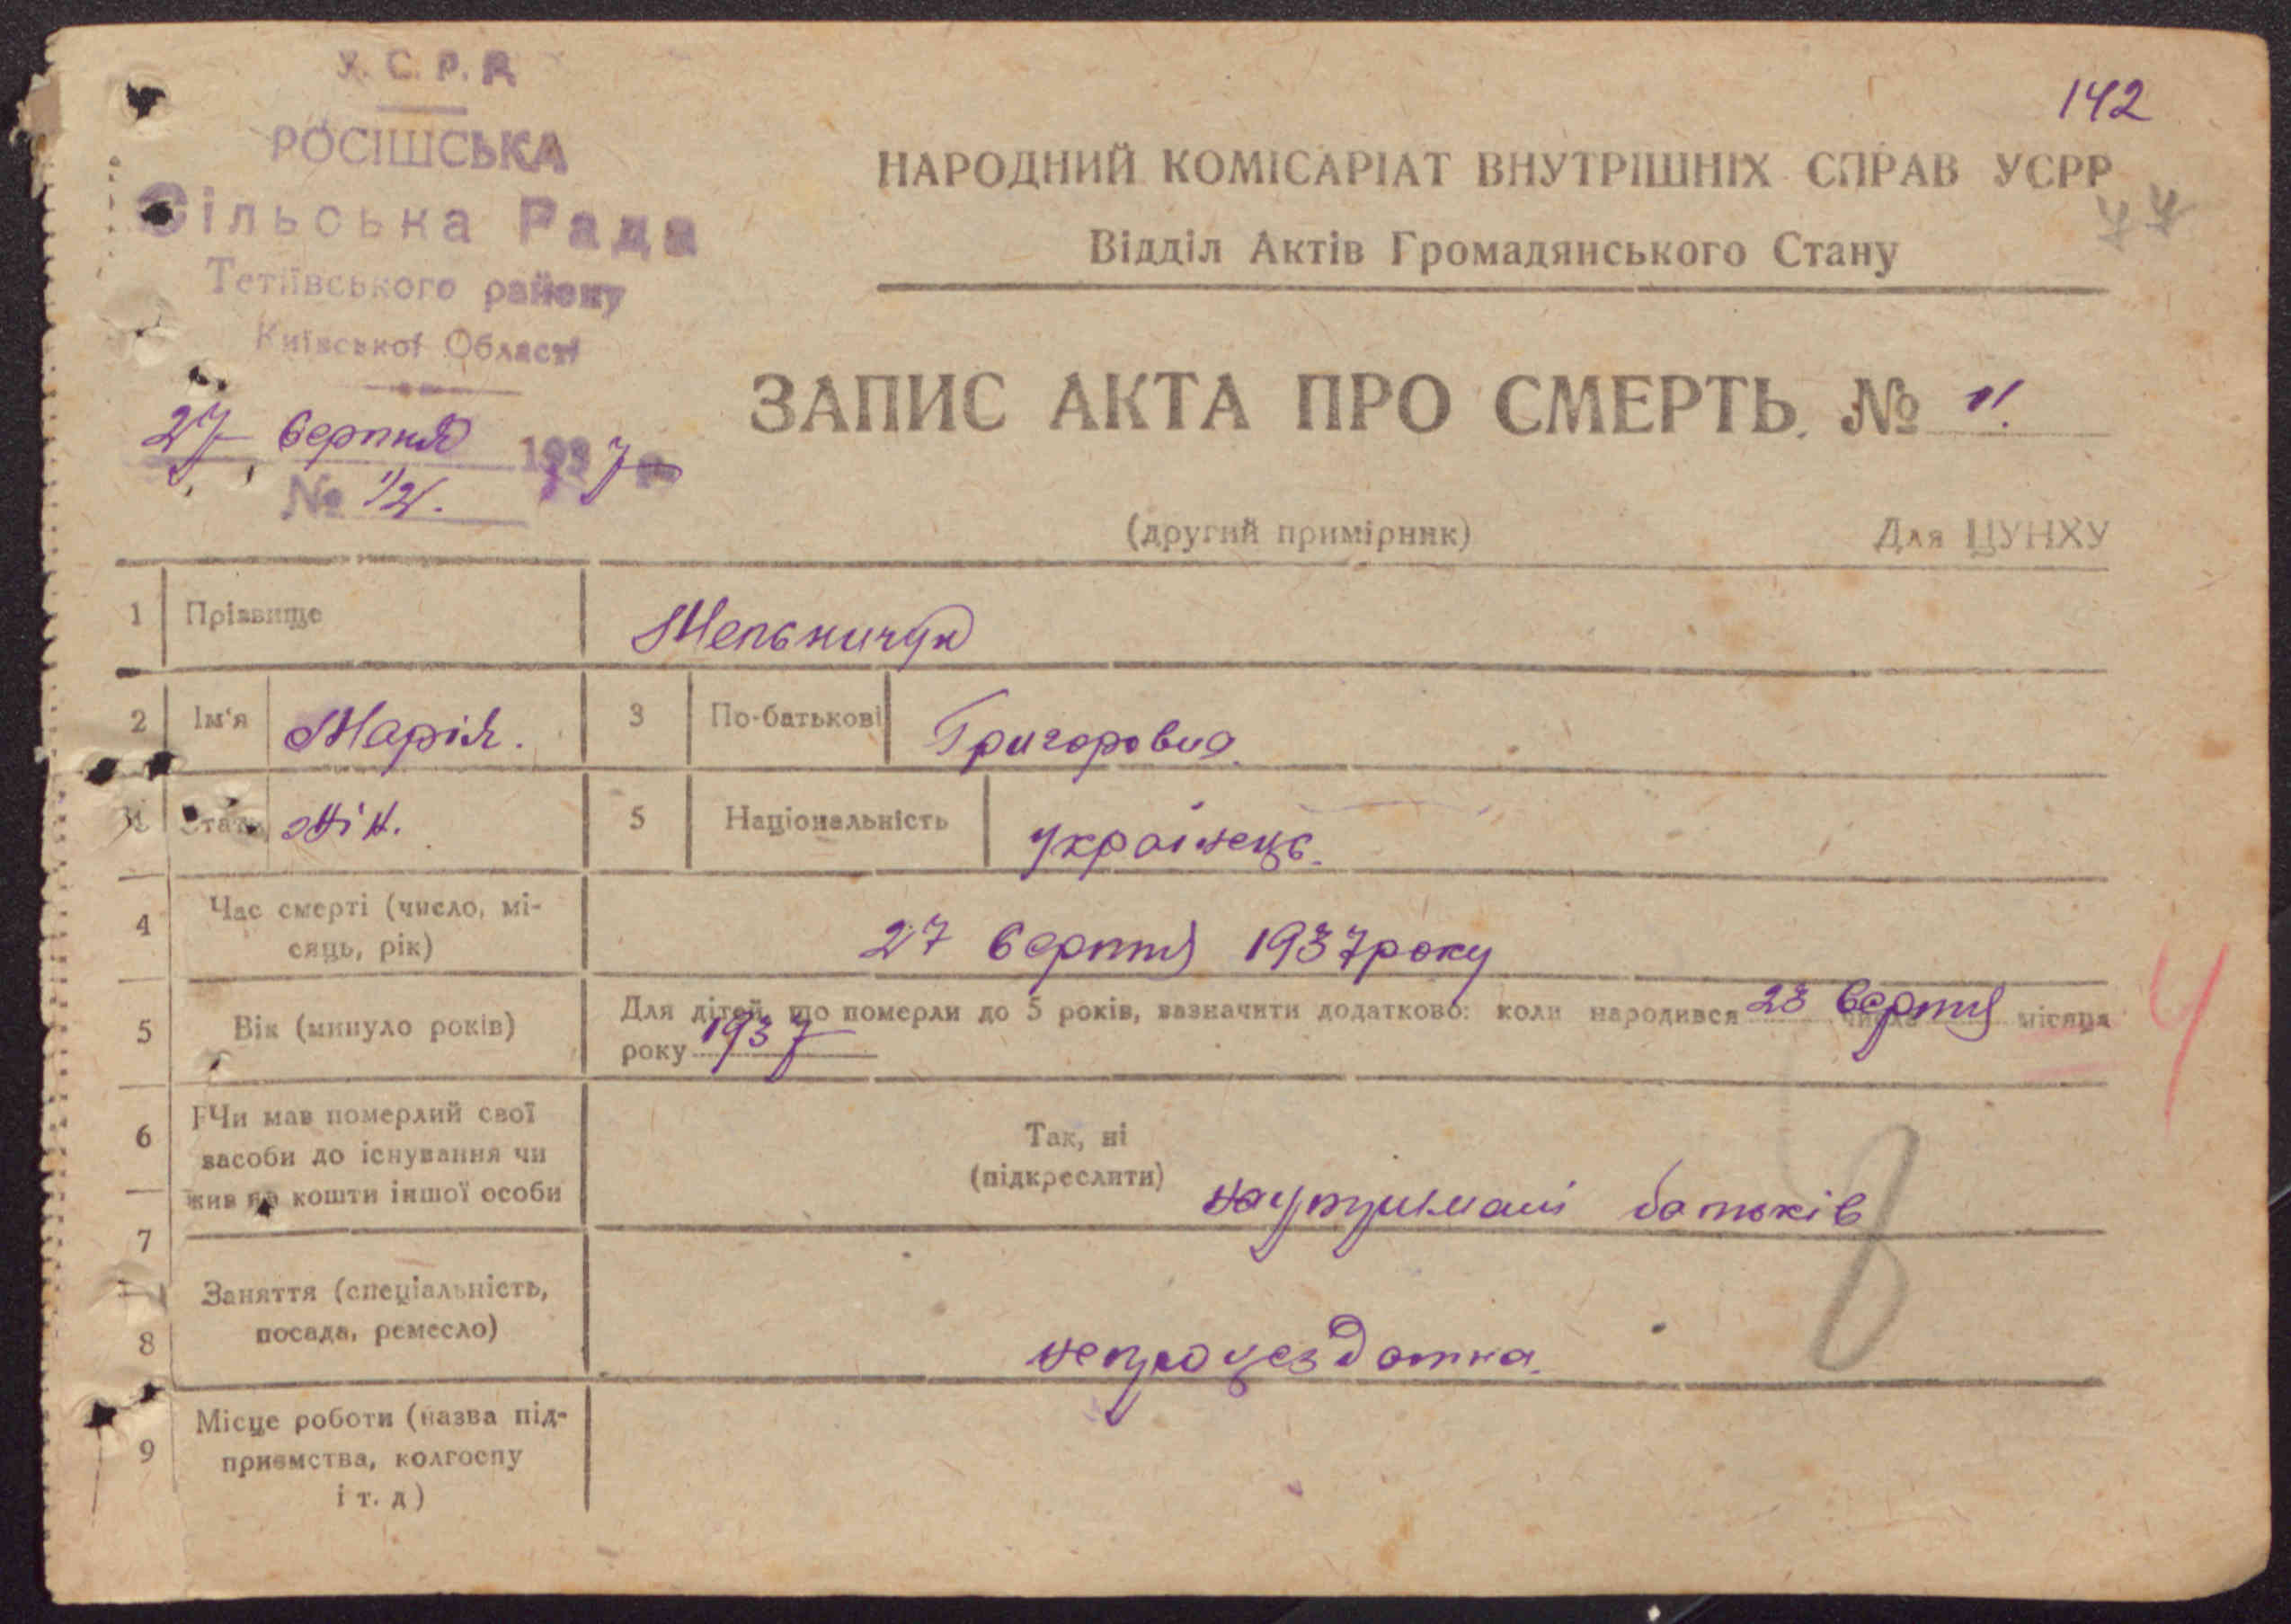 У. С. Р. Р.
РОСІШСЬКА
Сільська Рада
Тетіївського району
Київської Області
27 серпня 1937 р.
№ 1/2.
142
НАРОДНИЙ КОМІСАРІАТ ВНУТРІШНІХ СПРАВ УСРР
Відділ Актів Громадянського Стану
ЗАПИС АКТА ПРО СМЕРТЬ. № 11.
(другий примірник) Для ЦУНХУ
1 Прізвище Мельничук
2 Ім'я Марія. 3 По-батькові Григоровна.
Стать жін. 5 Національність українець.
4 Час смерті (число, мі-
сяць, рік) 27 серпня 1937 року
5 Вік (минуло років) Для дітей, що померли до 5 років, зазначити додатково: коли народився 23 числа серпня місяця
року 1937
4
6 Чи мав померлий свої
засоби до існування чи
жив на кошти іншої особи
Так, ні
(підкреслити) на утримані батьків
7
8 Заняття (спеціальність,
посада, ремесло) непрацездатна.
9 Місце роботи (назва під-
приємства, колгоспу
і т. д)